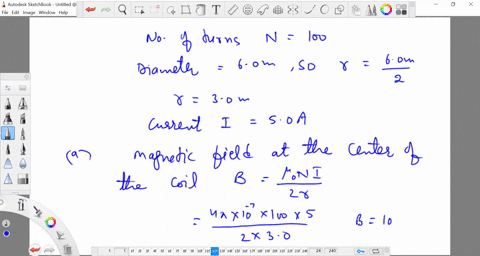 Autodesk SketchBook - Untitled @
No. of turns N = 100
Diameter = 6.0m, SO r = 6.0m/2
r = 3.0m
Current I = 5.0A
(a) magnetic field at the center of
the coil B = μ₀NI/2r
= 4π×10⁻⁷×100×5/2×3.0 B = 10